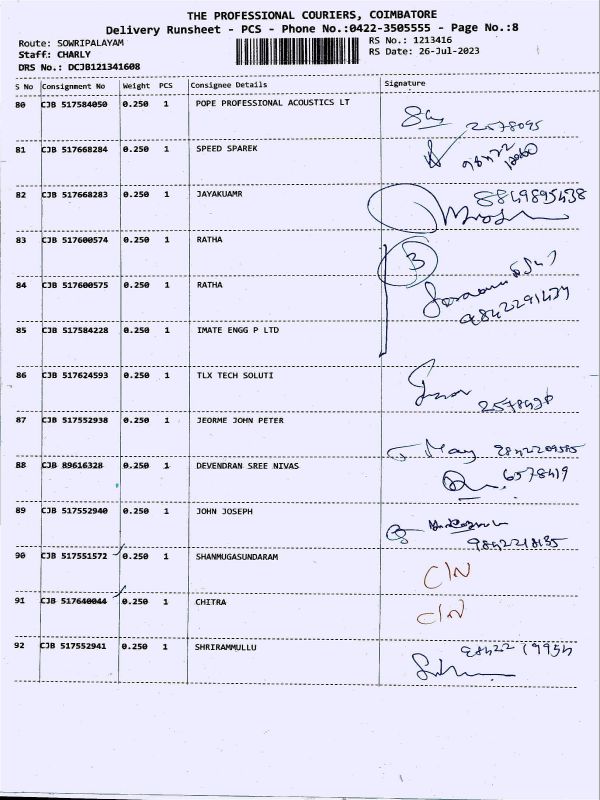 THE PROFESSIONAL COURIERS, COIMBATORE
Delivery Runsheet - PCS - Phone No.:0422-3505555 - Page No.:8
Route: SOWRIPALAYAM
RS No.: 1213416
Staff: CHARLY
RS Date: 26-Jul-2023
DRS No.: DCJB121341608
S No Consignment No Weight PCS Consignee Details Signature
80 CJB 517584050 0.250 1 POPE PROFESSIONAL ACOUSTICS LT
2578095
81 CJB 517668284 0.250 1 SPEED SPAREK
82 CJB 517668283 0.250 1 JAYAKUAMR 8849895438
83 CJB 517600574 0.250 1 RATHA
3
84 CJB 517600575 0.250 1 RATHA
9842291434
85 CJB 517584228 0.250 1 IMATE ENGG P LTD
86 CJB 517624593 0.250 1 TLX TECH SOLUTI
87 CJB 517552938 0.250 1 JEORME JOHN PETER
88 CJB 89616328 0.250 1 DEVENDRAN SREE NIVAS 6578419
89 CJB 517552940 0.250 1 JOHN JOSEPH
9842218135
90 CJB 517551572 0.250 1 SHANMUGASUNDARAM
C/N
91 CJB 517640044 0.250 1 CHITRA
C/N
92 CJB 517552941 0.250 1 SHRIRAMMULLU